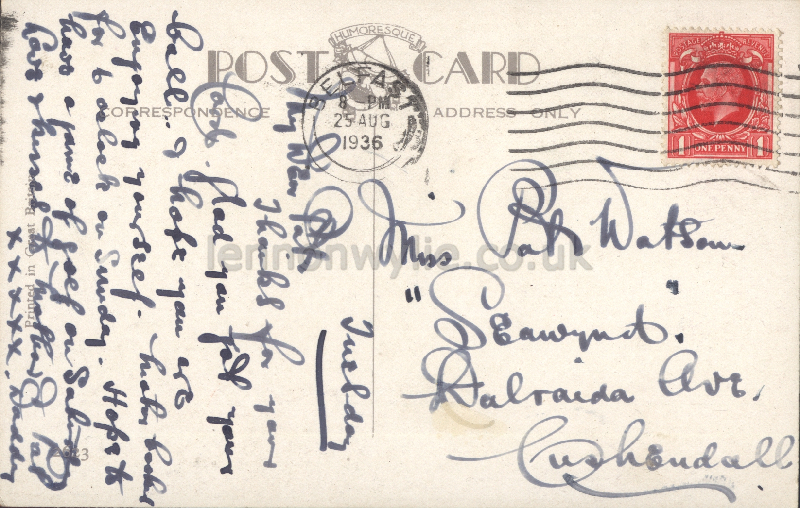 HUMORESQUE
POST CARD
CORRESPONDENCE
ADDRESS ONLY
BELFAST
8 PM
25 AUG
1936
POSTAGE REVENUE
1 ONE PENNY 1
Tuesday
My Dear Pat
Thanks for your
Card. Glad you got your
ball. I hope you are
Enjoying yourself.
for 6 o'clock on Sunday. Hope to
have a game of golf on
Love & kisses to Mother & Pat
x x x x x. Daddy
Miss Pat Watson
"Seawynd".
Dalraida Ave,
Cushendall
Printed in Great Britain
lennonwylie.co.uk